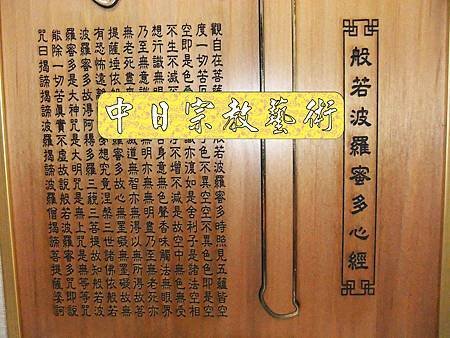 般若波羅蜜多心經
觀自在菩薩 般若波羅蜜多時照見五蘊皆空
度一切苦厄 子色不異空空不異色色即是空
空即是色受 識亦復如是舍利子是諸法空相
不生不滅不 淨不增不減是故空中無色無受
想行識無眼 舌身意無色聲香味觸法無眼界
乃至無意識 無明亦無無明盡乃至無老死亦
無老死盡無 滅道無智亦無得以無所得故菩
提薩埵依般 羅蜜多故心無罣礙無罣礙故無
有恐怖遠離 夢想究竟涅槃三世諸佛依般若
波羅蜜多故得阿耨多羅三藐三菩提故知般若波
羅蜜多是大神咒是大明咒是無上咒是無等等咒
能除一切苦真實不虛故說般若波羅蜜多咒即說
咒曰揭諦揭諦波羅揭諦波羅僧揭諦菩提薩婆訶
中日宗教藝術